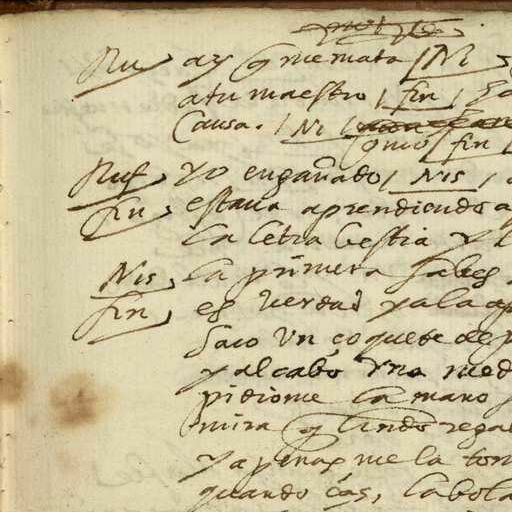 Ruf ay q me mata / Ni
a tu maestro / fin /
Causa. / Ni /
como / fin /
Ruf yo engañado / Nis /
fin estaua aprendiendo a
la letra bestia y
Nis la primera sabes
fin es verdad y a la
saco Vn coquete de
y al cabo Vna med
pidiome la mano
mira q lindo rega
y apenas me la tom
quando cas, la bola